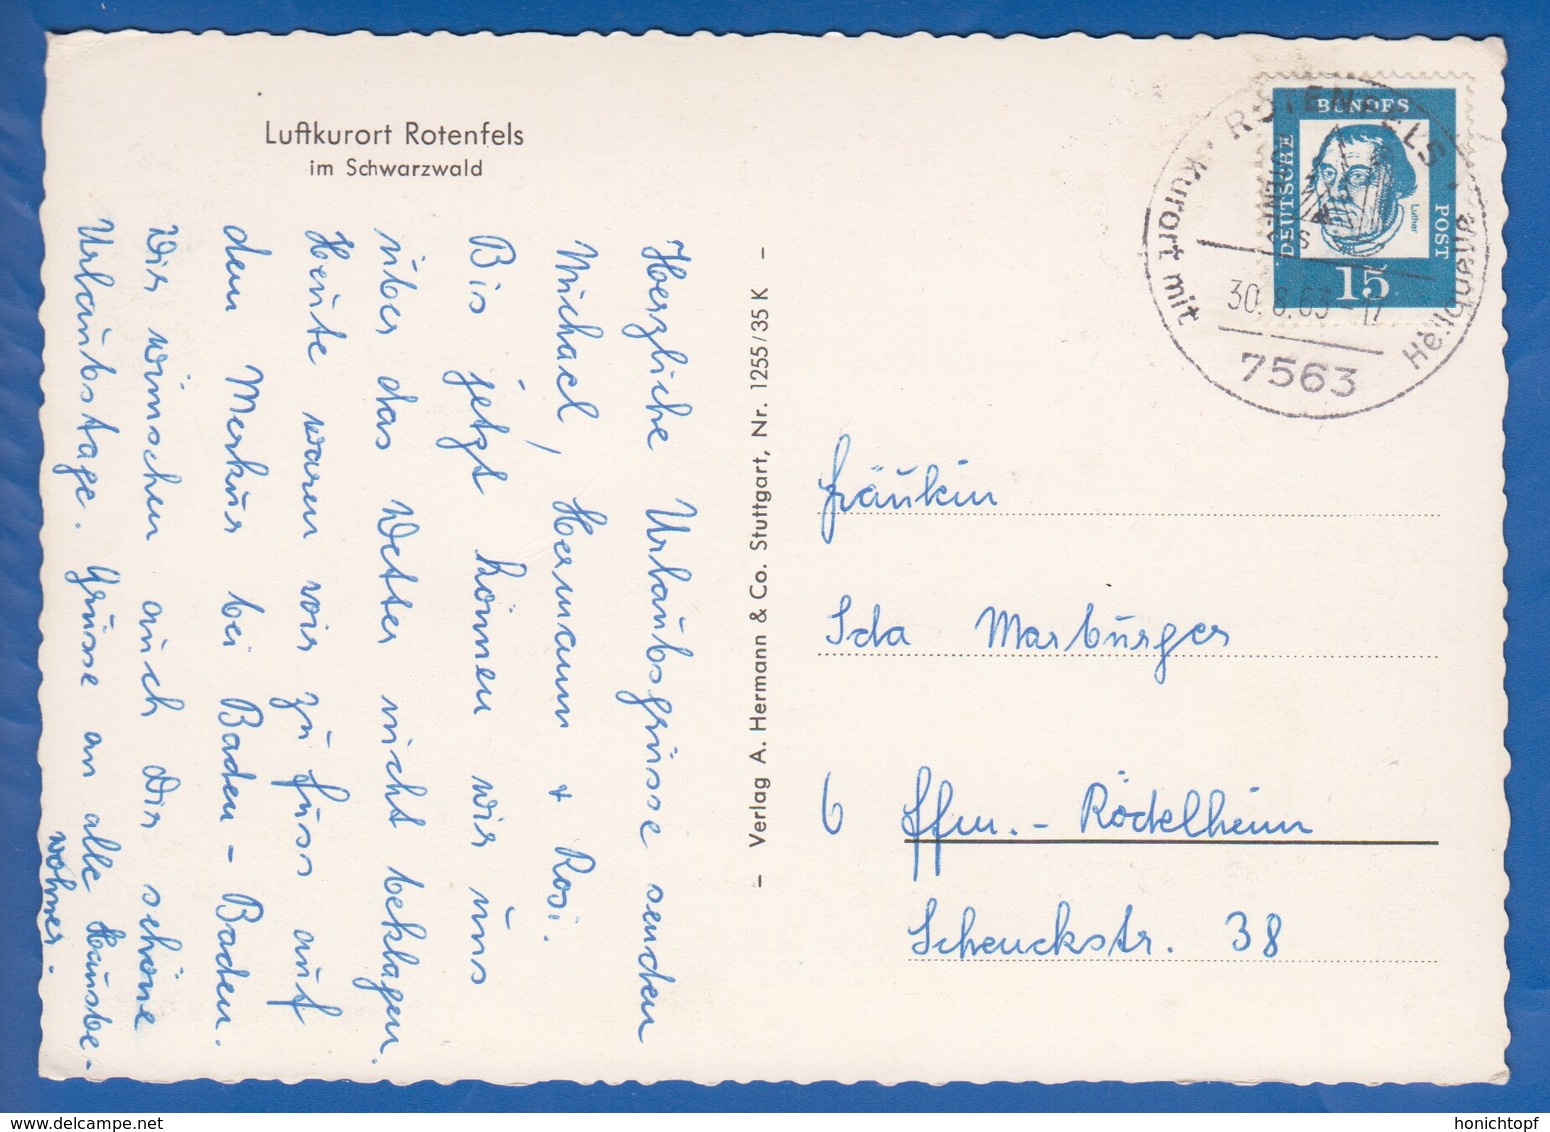 Luftkurort Rotenfels
im Schwarzwald
Herzliche Urlaubsgrüsse senden
Michael, Hermann + Rosi.
Bis jetzt können wir uns
über das Wetter nicht beklagen.
Heute waren wir zu Fuss auf
dem Merkur bei Baden-Baden.
Wir wünschen auch Dir schöne
Urlaubstage. Grüsse an alle Hausbe-
wohner.
– Verlag A. Hermann & Co. Stuttgart, Nr. 1255/35 K –
ROTENFELS
Kurort mit Heilquelle
30.8.63
7563
DEUTSCHE
BUNDES
POST
Luther
15
Fräulein
Ida Marburger
6 Ffm.-Rödelheim
Schenckstr. 38
delcampe.net
honichtopf